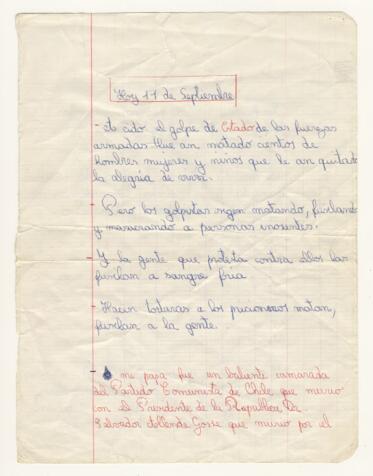 Hoy 11 de Septiembre
- A sido el golpe de Estado de las fuerzas
armadas que an matado cientos de
hombres mujeres y ninos que le an quitado
la alegria de vivir.
- Pero los golpistas sigen matando, fusilando
y masacrando a personas inosentes.
- Y la gente que protesta contra ellos las
fusilan a sangre fria
- Hacen torturas a los pricioneros matan,
fusilan a la gente.
- mi papa fue un baliente camarada
del Partido Comunista de Chile que murio
con el Presidente de la Republica Dr.
Salvador Allende Gosse que murio por el